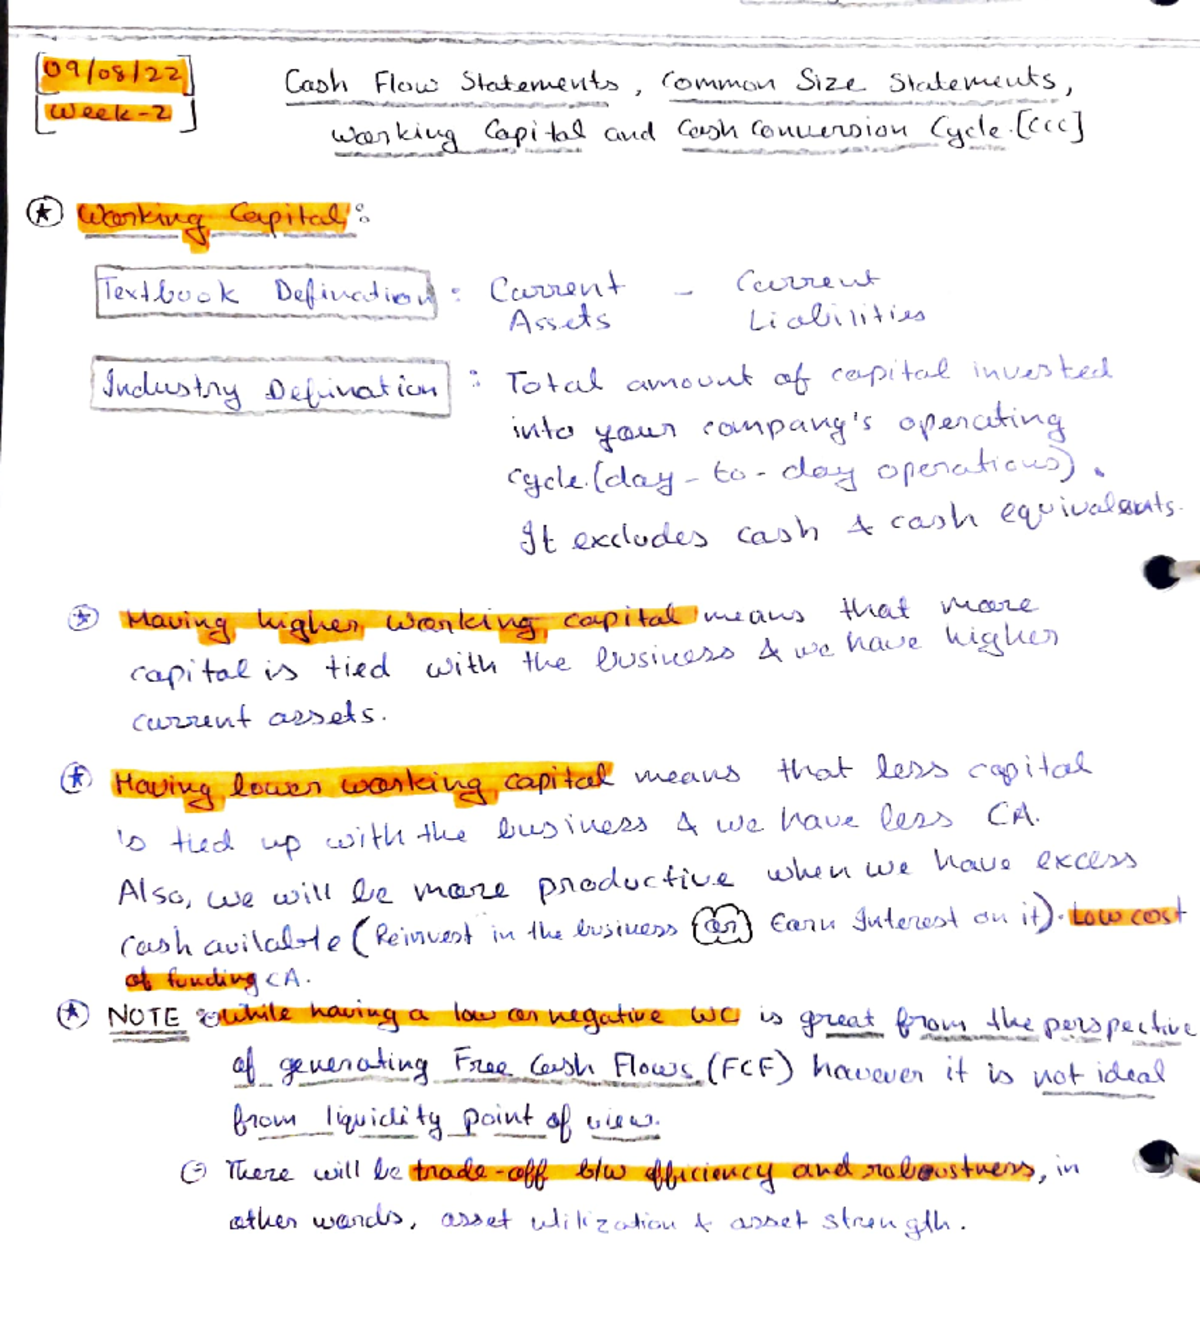 09/08/22
Week-2
Cash Flow Statements, Common Size Statements,
Working Capital and Cash Conversion Cycle.[CCC]
Working Capital:
Textbook Defination : Current Assets - Current Liabilities
Industry Defination : Total amount of capital invested
into your company's operating
cycle.(day-to-day operations).
It excludes cash & cash equivalents.
Having higher working capital means that more
capital is tied with the business & we have higher
current assets.
Having lower working capital means that less capital
is tied up with the business & we have less CA.
Also, we will be more productive when we have excess
cash avilable (Reinvest in the business (or) Earn Interest on it). Low cost
of funding CA.
NOTE : While having a low or negative WC is great from the perspective
of generating Free Cash Flows (FCF) however it is not ideal
from liquidity point of view.
There will be trade-off b/w efficiency and roboustness, in
other words, asset utilization & asset strength.